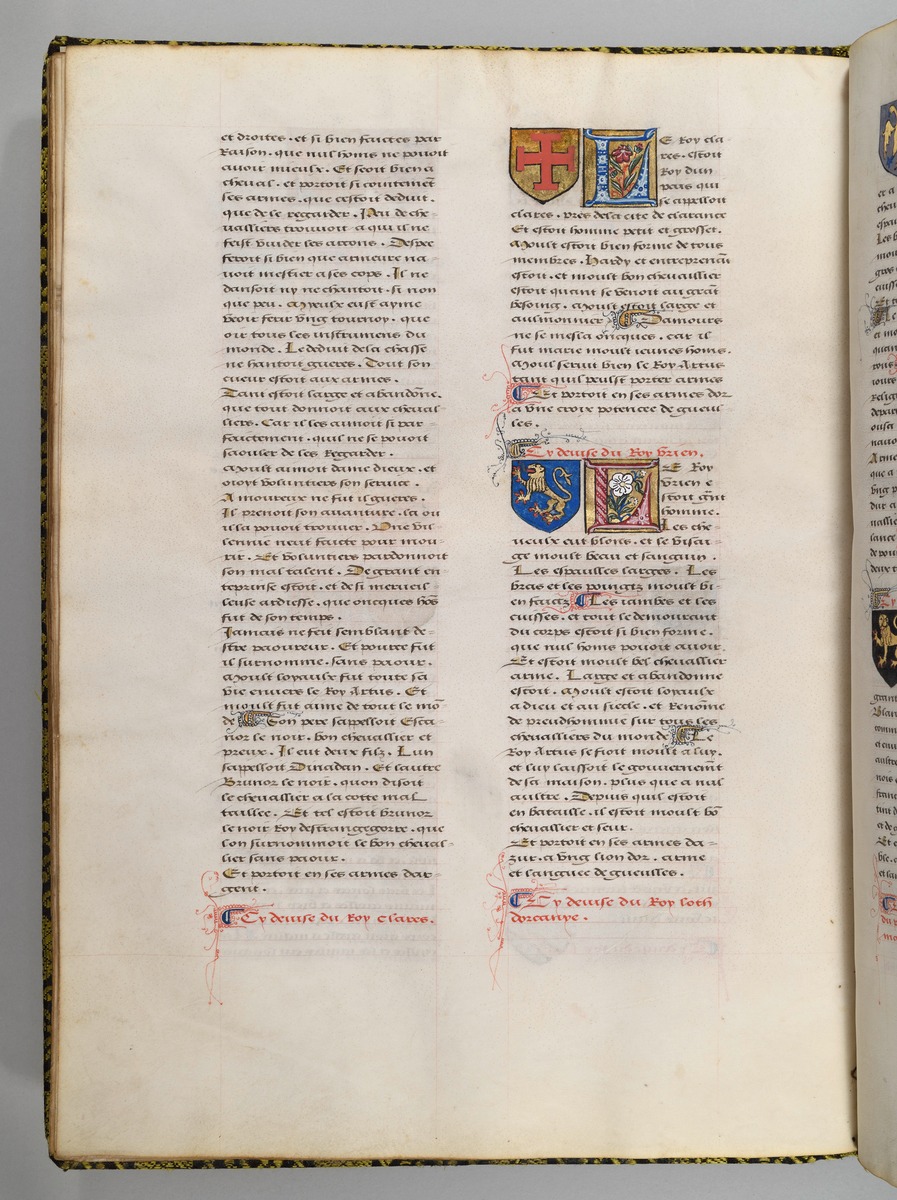 et droites . et si bien faictes par
Raison . que nul homs ne pouoit
auoir mieulx . Et seoit bien a
cheual . et portoit si cointemēt
ses armes . que cestoit deduit .
que de le regarder . Peu de che
ualliers trouuoit a qui il ne
feist vuider les arcons . Despee
feroit si bien que armeure na=
uoit mestier a ses cops . Il ne
dansoit ny ne chantoit . si non
que peu . Mieulx eust ayme
veoir ferir vng tournoy . que
oir tous les instrumens du
monde . Le deduit de la chasse
ne hantoit gueres . Tout son
cueur estoit aux armes .
Tant estoit large et abandōne .
que tout donnoit aux cheual=
liers . Car il les aimoit si par=
faictement . quil ne se pouoit
saouler de les Regarder .
Moult aimoit dame dieux . et
oioyt voluntiers son seruice .
Amoureux ne fut il gueres .
Il prenoit son auanture . la ou
il la pouoit trouuer . Une vil=
lennie neut faicte pour mou=
rir . Et voluntiers pardonnoit
son mal talent . De grant en
teprinse estoit . et de si merueil
leuse ardiesse . que oncques hōs
fut de son temps .
Jamais ne feit semblant de=
stre paoureux . Et pource fut
il surnomme . sans paour .
Moult loyaulx fut toute sa
vie enuers le Roy Artus . Et
moult fut aime de tout le mō
de Son pere sappelloit Esca=
nor le noir . bon cheuallier et
preux . Il eut deux filz . Lun
sappelloit Dinadan . Et lautre
Brunor le noir . quon disoit
le cheuallier a la cotte mal
taillee . Et tel estoit brunor
le noir Roy destrangegorre . que
lon surnommoit le bon cheual=
lier sans paour .
Et portoit en ses armes dar=
gent .
Cy deuise du Roy Clares .
LE Roy cla=
res . estoit
Roy dun
pais qui
se appelloit
clares . pres de la cite de clarance
Et estoit homme petit et grosset .
Moult estoit bien forme de tous
membres . Hardy et entreprenāt
estoit . et moult bon cheuallier
estoit quant se venoit au grāt
besoing . Moult estoit large et
aulmonnier Damours
ne se mesla oncques . car il
fut marie moult ieunes homs .
Moult seruit bien le Roy Artus
tant quil peulst porter armes
Et portoit en ses armes dor
a vne croix potencee de gueul
les .
Cy deuise du Roy vrien .
LE Roy
vrien e
stoit grāt
homme .
Les che=
ueulx eut blons . et le visai=
ge moult beau et sanguin .
Les espaulles larges . Les
bras et les poingtz moult bi=
en faictz Les iambes et les
cuisses . et tout le demourant
du corps estoit si bien forme .
que nul homs pouoit auoir .
Et estoit moult bel cheuallier
arme . Large et abandonne
estoit . Moult estoit loyaulx
a dieu et au siecle . et Renōme
de preudhommie sur tous les
cheualliers du monde Le
Roy Artus se fioit moult a luy .
et luy laissoit le gouuernemēt
de sa maison . plus que a nul
aultre . Depuis quil estoit
en bataille . il estoit moult bō
cheuallier et seur .
Et portoit en ses armes da=
zur . a vng lion dor . arme
et languee de gueulles .
Cy deuise du Roy loth
dorcanye .